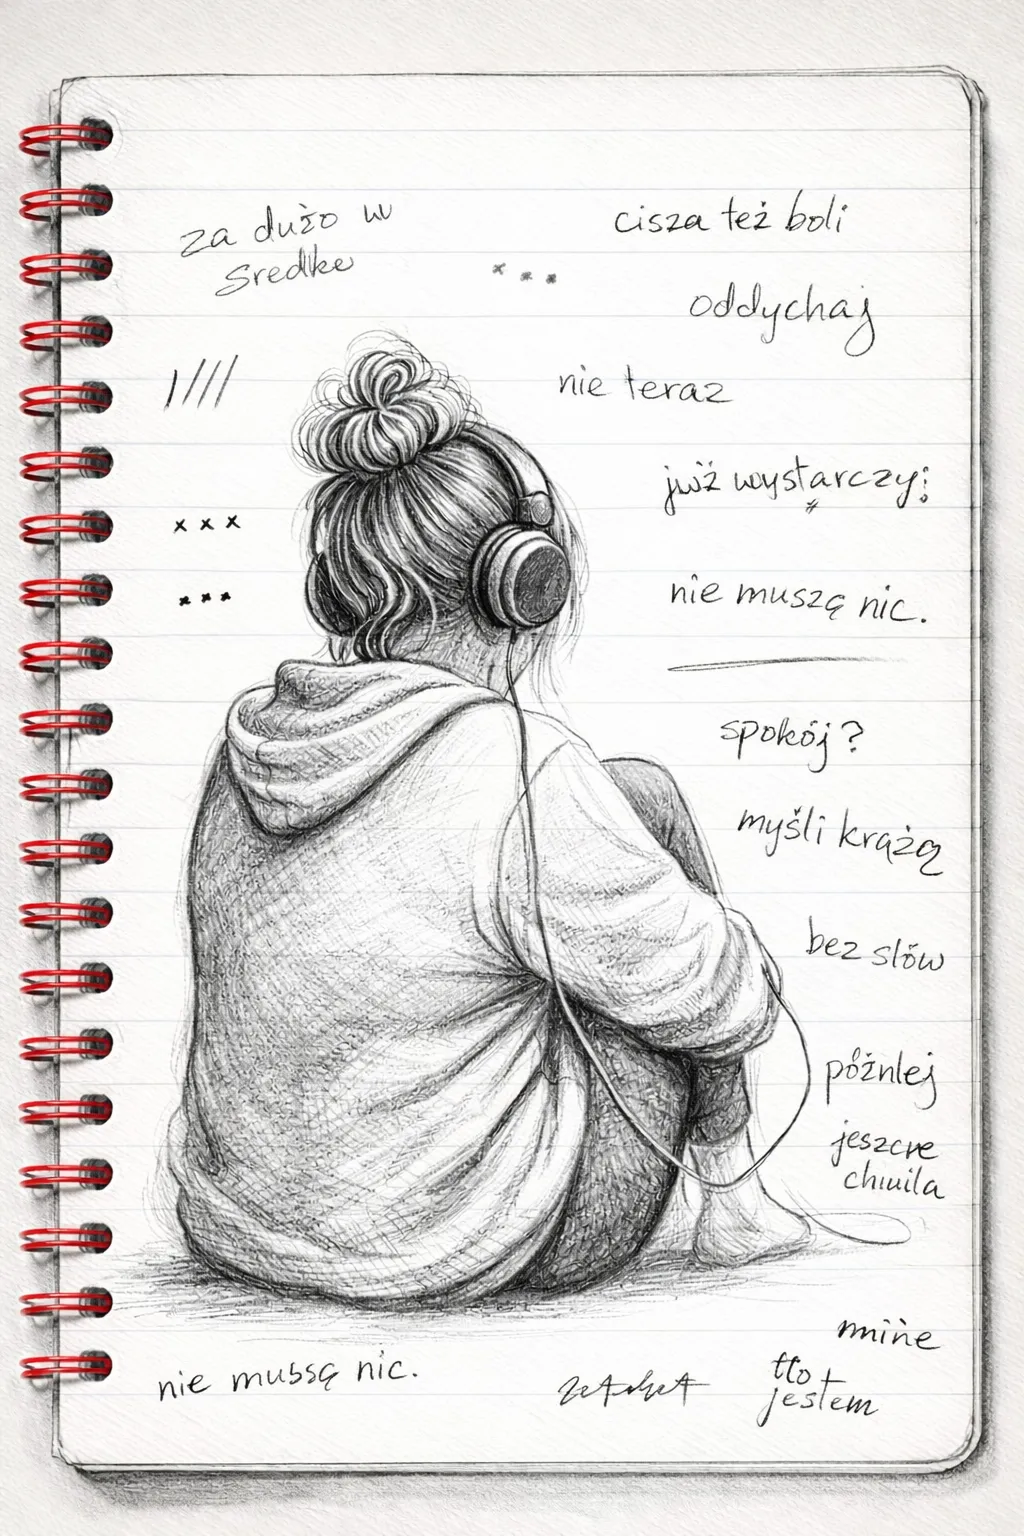 za dużo w
sredke
cisza też boli
oddychaj
nie teraz
już wystarczy:
nie muszą nic.
spokój?
myśli krążą
bez słów
później
jeszcze
chwila
mnine
nie mubsą nic.
tło
jestem